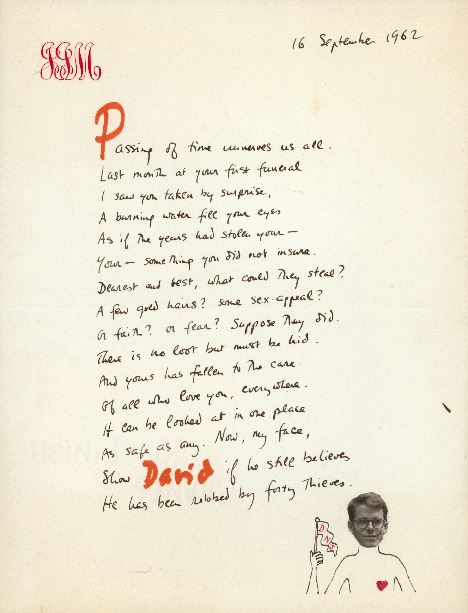 16 September 1962
JIM
Passing of time unnerves us all.
Last month at your first funeral
I saw you taken by surprise,
A burning water fill your eyes
As if the years had stolen your—
Your— something you did not insure.
Dearest and best, what could they steal?
A few gold hairs? some sex-appeal?
Or faith? or fear? Suppose they did.
There is no loot but must be hid.
And yours has fallen to the care
Of all who love you, everywhere.
It can be looked at in one place
As safe as any. Now, my face,
Show David if he still believes
He has been robbed by forty thieves.